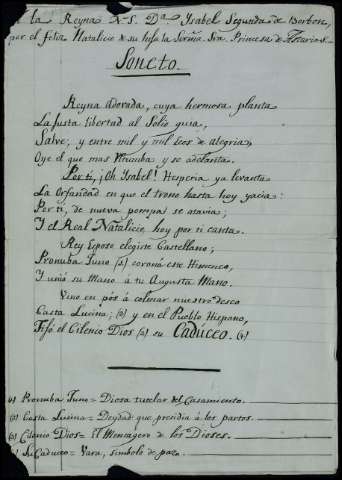 A la Reyna N.S. D.ª Ysabel Segunda de Borbon,
por el feliz Natalicio de su hija la Serma. Sra. Princesa de Asturias.
Soneto.
Reyna adorada, cuya hermosa planta
La justa libertad al Solio guia,
Salve; y entre mil y mil ecos de alegria,
Oye el que mas retumba y se adelanta.
Por ti, ¡Oh Isabel! Hesperia ya levanta
La Orfandad en que el trono hasta hoy yacia:
Por ti, de nueva pompa se atavia;
Y el Real Natalicio hoy por ti canta.
Rey Esposo elegiste Castellano;
Pronuba Juno (1) coronó este Himeneo,
Y unió su Mano á tu Augusta Mano.
Vino en pós á colmar nuestro deseo
Casta Lucina; (2) y en el Pueblo Hispano,
Fijó el Cilenio Dios (3) su Caduceo. (4)
(1) Pronuba Juno = Diosa tutelar del Casamiento.
(2) Casta Lucina = Deydad que presidia á los partos.
(3) Cilenio Dios = El Mensagero de los Dioses.
(4) Su Caduceo = Vara, simbolo de paz.